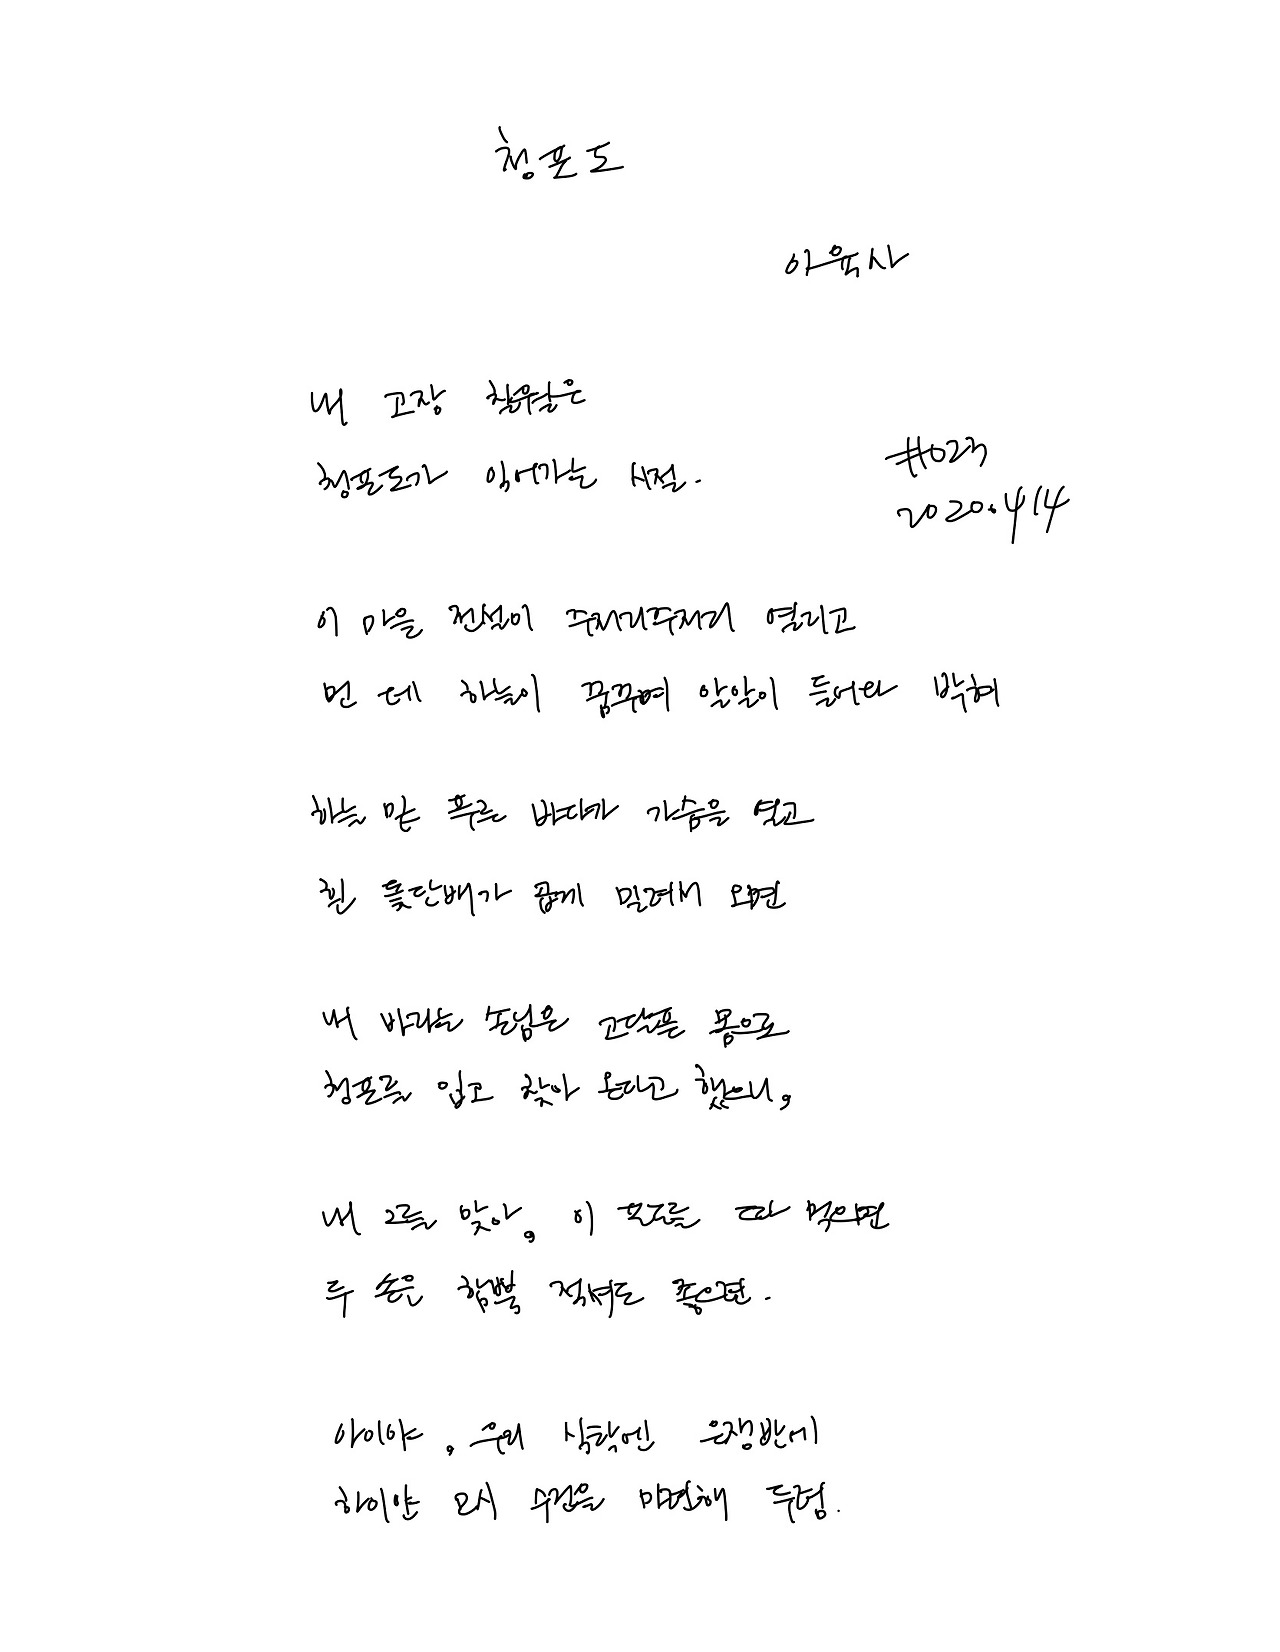 청포도
이육사
내 고장 칠월은
청포도가 익어가는 시절.
#023
2020.4.14
이 마을 전설이 주저리주저리 열리고
먼 데 하늘이 꿈꾸며 알알이 들어와 박혀
하늘 밑 푸른 바다가 가슴을 열고
흰 돛단배가 곱게 밀려서 오면
내 바라는 손님은 고달픈 몸으로
청포를 입고 찾아 온다고 했으니,
내 그를 맞아, 이 포도를 따 먹으면
두 손은 함뿍 적셔도 좋으련.
아이야, 우리 식탁엔 은쟁반에
하이얀 모시 수건을 마련해 두렴.